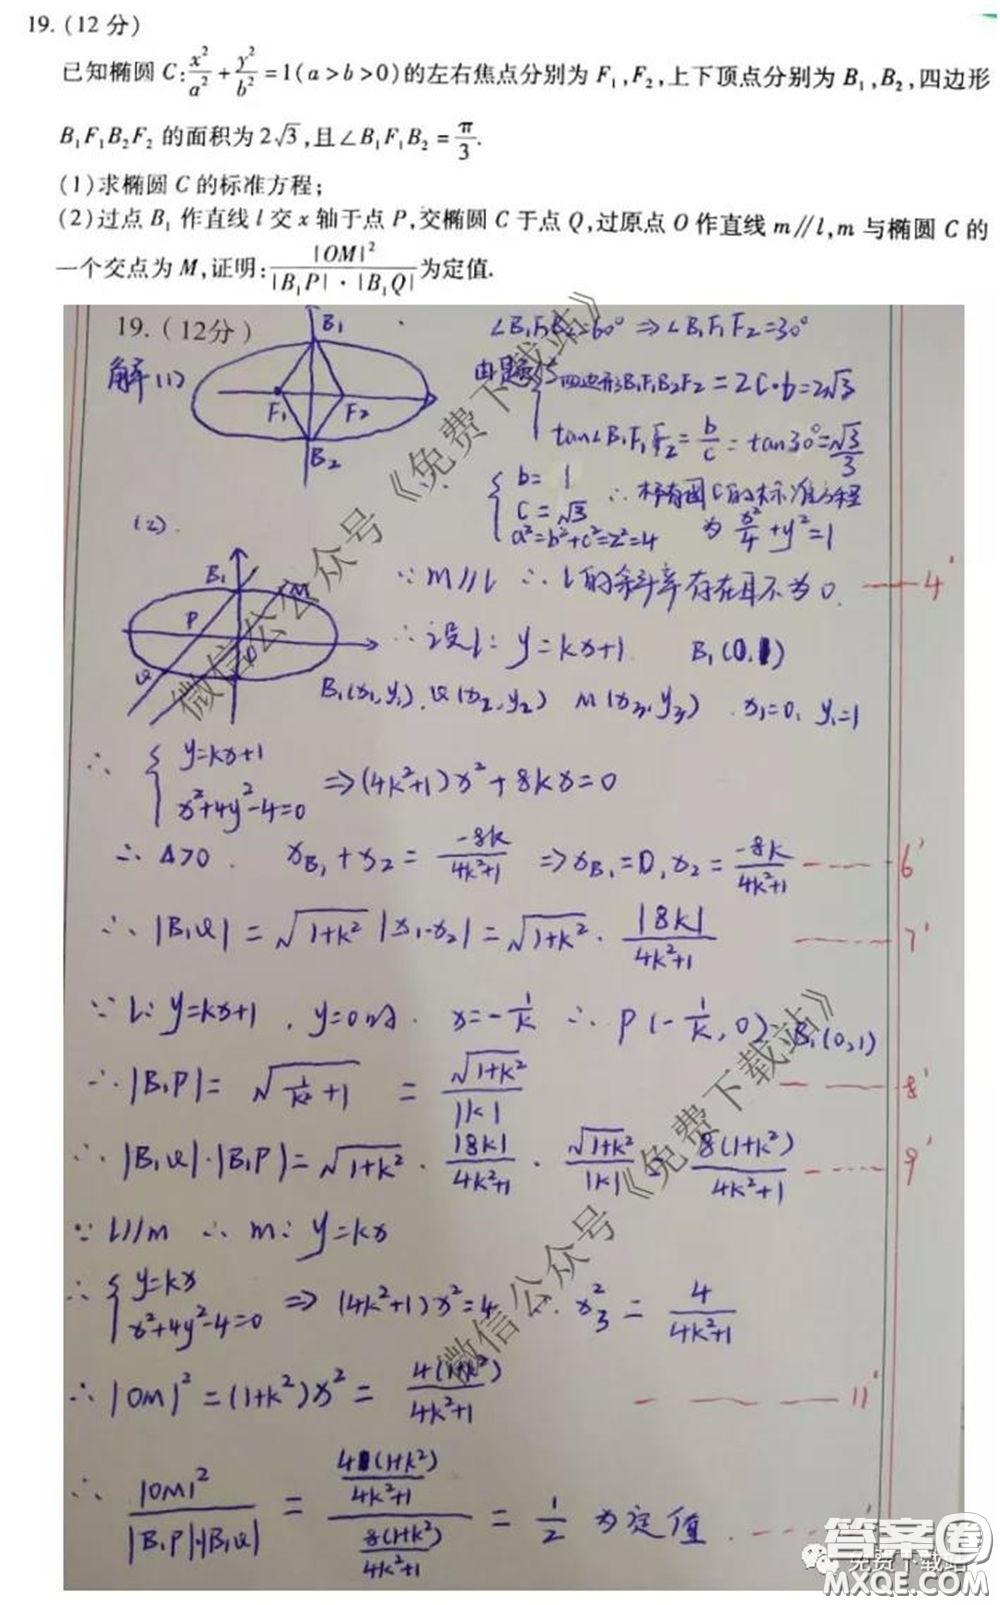 19. (12 分)
已知椭圆 C: x²/a² + y²/b² = 1 (a > b > 0) 的左右焦点分别为 F₁, F₂, 上下顶点分别为 B₁, B₂, 四边形
B₁F₁B₂F₂ 的面积为 2√3, 且∠B₁F₁B₂ = π/3.
(1) 求椭圆 C 的标准方程;
(2) 过点 B₁ 作直线 l 交 x 轴于点 P, 交椭圆 C 于点 Q, 过原点 O 作直线 m∥l, m 与椭圆 C 的
一个交点为 M, 证明: |OM|²/(|B₁P|·|B₁Q|) 为定值.
19. (12分)
∠B₁F₁B₂=60° ⇒∠B₁F₁F₂=30°
解(1)
B₁
F₁
F₂
B₂
四边形B₁F₁B₂F₂ = 2c·b=2√3
tan∠B₁F₁F₂ = b/c = tan30°=√3/3
{ b= 1
c = √3
a²=b²+c²=2²=4
∴ 椭圆C的标准方程
为 x²/4 + y²=1
(2).
B₁
M
P
O
Q
∵ m∥l ∴ l的斜率存在且不为0. 4'
∴ 设l: y=kx+1 B₁(0,1)
B₁(x₁,y₁). Q(x₂,y₂) M(x₃,y₃). x₁=0, y₁=1
∴ { y=kx+1
x²+4y²-4=0 ⇒(4k²+1)x²+8kx=0
∴ Δ>0. x_B₁+x₂ = -8k/(4k²+1) ⇒x_B₁=0, x₂ = -8k/(4k²+1) 6'
∴ |B₁Q| = √(1+k²) |x₁-x₂| = √(1+k²) · |8k|/(4k²+1) 7'
∵ l: y=kx+1, y=0时. x=-1/k ∴ P(-1/k, 0) B₁(0,1)
∴ |B₁P| = √(1/k²+1) = √(1+k²)/|k| 8'
∴ |B₁Q|·|B₁P| = √(1+k²) · |8k|/(4k²+1) · √(1+k²)/|k| = 8(1+k²)/(4k²+1) 9'
∵ l//m ∴ m: y=kx
∴ { y=kx
x²+4y²-4=0 ⇒ (4k²+1)x²=4 ∴ x₃² = 4/(4k²+1)
∴ |OM|²=(1+k²)x² = 4(1+k²)/(4k²+1) 11'
∴ |OM|²/(|B₁P|·|B₁Q|) = (4(1+k²)/(4k²+1))/(8(1+k²)/(4k²+1)) = 1/2 为定值.
微信公众号《免费下载站》
微信公众号《免费下载站》
免费下载站
答案圈
MXQE.COM